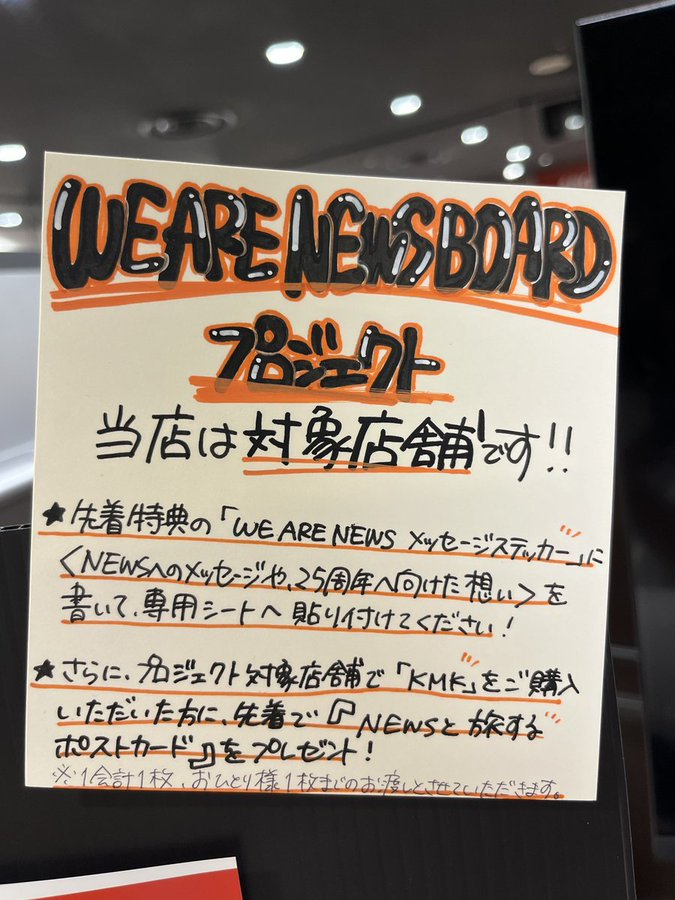 WE ARE NEWS BOARD
プロジェクト
当店は対象店舗です!!
★先着特典の「WE ARE NEWS メッセージステッカー」に
<NEWSへのメッセージや、25周年へ向けた想い>を
書いて、専用シートへ貼り付けてください!
★さらに、プロジェクト対象店舗で「KMK」をご購入
いただいた方に、先着で『NEWSと旅する
ポストカード』をプレゼント!
※1会計1枚、おひとり様1枚までのお渡しとさせていただきます。